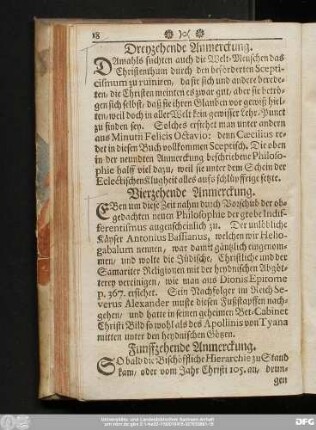 18
Dreyzehende Anmerckung.
DAmahls suchten auch die Welt-Menschen das
Christenthum durch den beförderten Scepti-
cismum zu ruiniren, da sie sich und andere berede-
ten, die Christen meinten es zwar gut, aber sie betrö-
gen sich selbst, daß sie ihren Glauben vor gewiß hiel-
ten, weil doch in aller Welt kein gewisser Lehr-Punct
zu finden sey. Solches ersiehet man unter andern
aus Minutii Felicis Octavio: denn Cæcilius re-
det in diesen Buch vollkommen Sceptisch. Die oben
in der neundten Anmerckung beschriebene Philoso-
phie halff viel dazu, weil sie unter dem Schein der
Eclectischen Klugheit alles aufs schlüpfrige setzte.
Vierzehende Anmerckung.
EBen um diese Zeit nahm durch Vorschub der ob-
gedachten neuen Philosophie der grobe Indif-
ferentismus augenscheinlich zu. Der unlöbliche
Käyser Antonius Bassianus, welchen wir Helio-
gabalum nennen, war damit gäntzlich eingenom-
men, und wolte die Jüdische, Christliche und der
Samariter Religionen mit der heydnischen Abgöt-
terey vereinigen, wie man aus Dionis Epitome
p. 367. ersiehet. Sein Nachfolger im Reich Se-
verus Alexander muste diesen Fußstapffen nach-
gehen, und hatte in seinen geheimen Bet-Cabinet
Christi Bild so wohl als des Apollinis von Tyana
mitten unter den heydnischen Götzen.
Funffzehende Anmerckung.
SO bald die Bischöffliche Hierarchie zu Stand
kam, oder vom Jahr Christi 105. an, drun-
gen